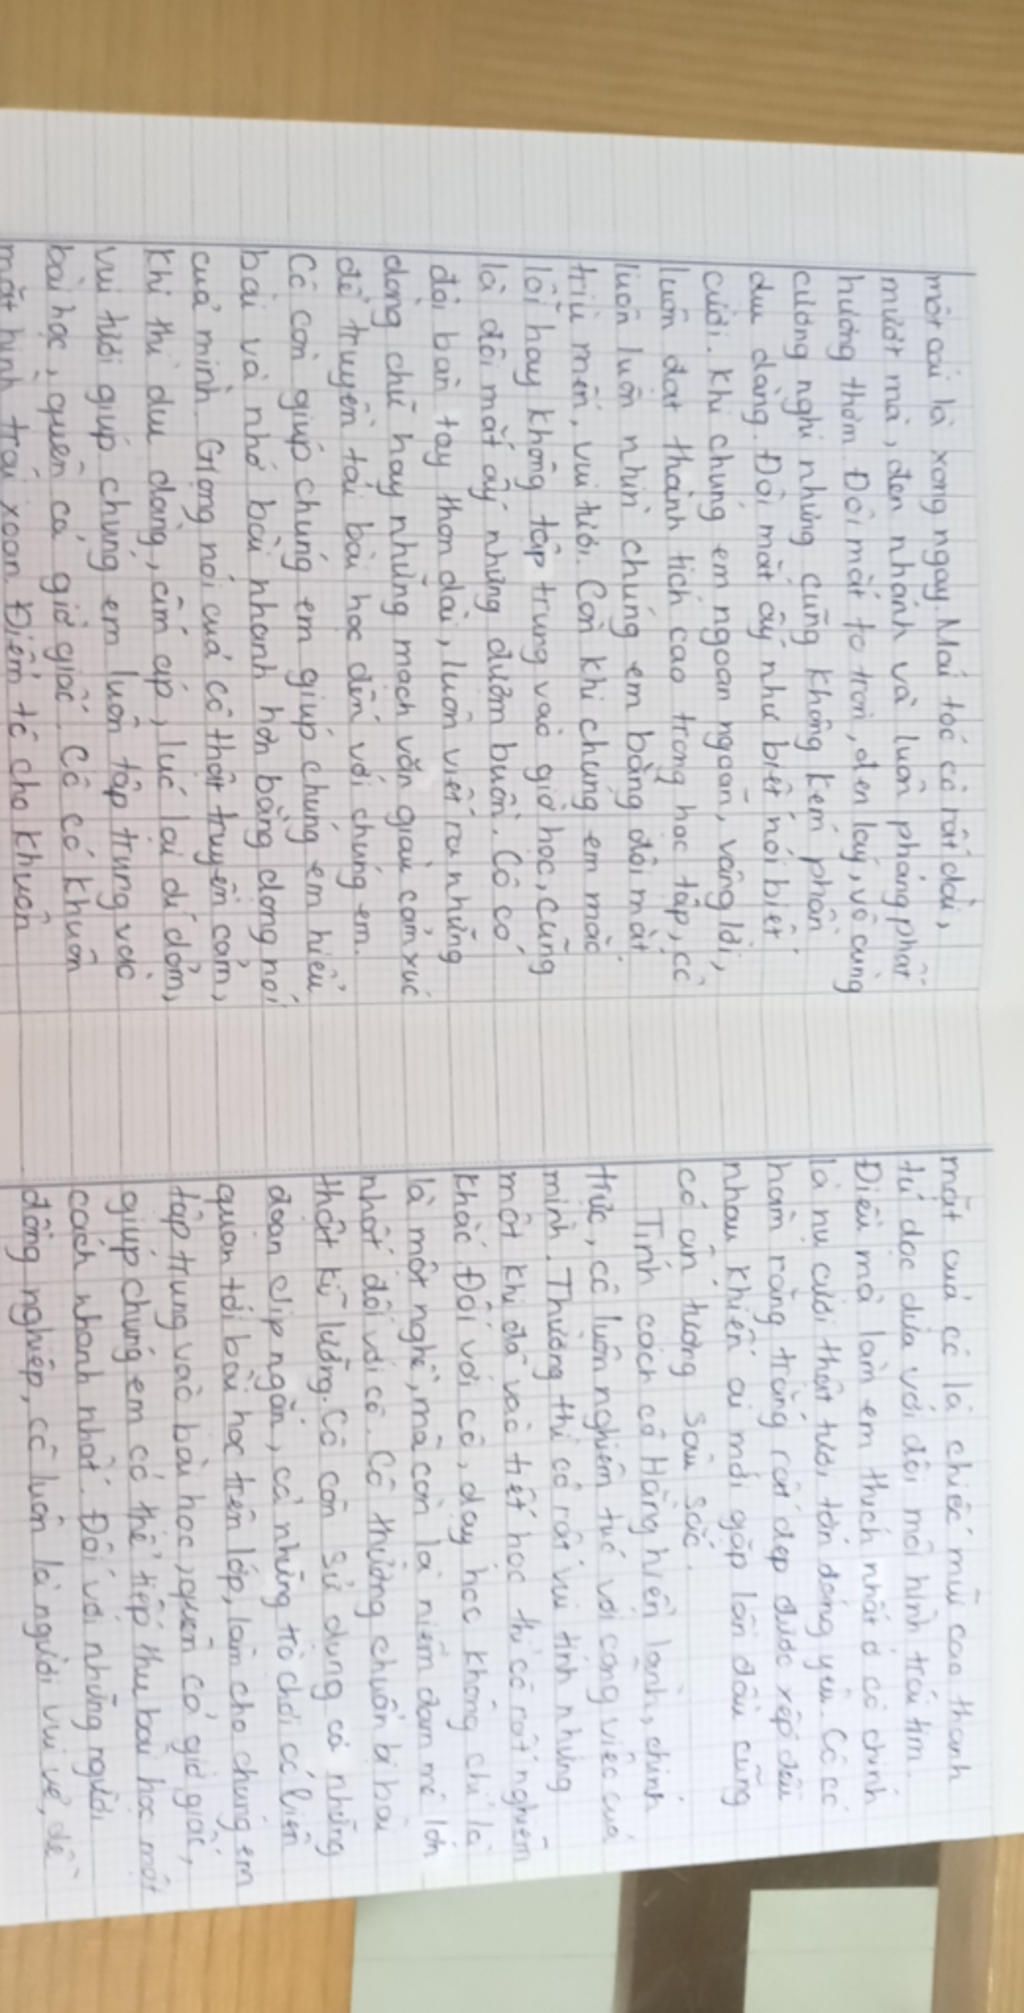 một cái là xong ngay. Mái tóc cô rất dài,
mượt mà, đen nhánh và luôn phảng phất
hương thơm. Đôi mắt to tròn, đen láy, vô cùng
cương nghị nhưng cũng không kém phần
dịu dàng. Đôi mắt ấy như biết nói biết
cười. Khi chúng em ngoan ngoãn, vâng lời,
luôn đạt thành tích cao trong học tập, cô
luôn luôn nhìn chúng em bằng đôi mắt
trìu mến, vui tươi. Còn khi chúng em mắc
lỗi hay không tập trung vào giờ học, cũng
là đôi mắt ấy nhưng đượm buồn. Cô có
đôi bàn tay thon dài, luôn viết ra những
dòng chữ hay những mạch văn giàu cảm xúc
để truyền tải bài học đến với chúng em.
Cô còn giúp chúng em giúp chúng em hiểu
bài và nhớ bài nhanh hơn bằng dọng nói
của mình. Giọng nói của cô thật truyền cảm,
khi thì dịu dàng, ấm áp, lúc lại dí dỏm,
vui tươi giúp chúng em luôn tập trung vào
bài học, quên cả giờ giấc. Cô có khuôn
mặt hình trái xoan. Điểm tô cho khuôn
mặt của cô là chiếc mũi cao thanh
tú dọc dừa với đôi môi hình trái tim.
Điều mà làm em thích nhất ở cô chính
là nụ cười thật tươi, tắn đáng yêu. Cô có
hàm răng trắng rất đẹp được xếp đều
nhau khiến ai mới gặp lần đầu cũng
có ấn tượng sâu sắc.
Tính cách cô Hằng hiền lành, chính
trực, cô luôn nghiêm túc với công việc của
mình. Thường thì cô rất vui tính nhưng
một khi đã vào tiết học thì cô rất nghiêm
khắc. Đối với cô, dạy học không chỉ là
là một nghề, mà còn là niềm đam mê lớn
nhất đối với cô. Cô thường chuẩn bị bài
thật kĩ lưỡng. Cô còn sử dụng cả những
đoạn clip ngắn, cả những trò chơi có liên
quan tới bài học trên lớp, làm cho chúng em
tập trung vào bài học, quên cả giờ giấc,
giúp chúng em có thể tiếp thu bài học một
cách nhanh nhất. Đối với những người
đồng nghiệp, cô luôn là người vui vẻ, dễ